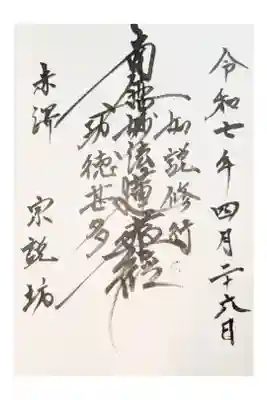 令和七年四月二十六日
如説修行
南無妙法蓮華經
功徳甚多
宗説坊